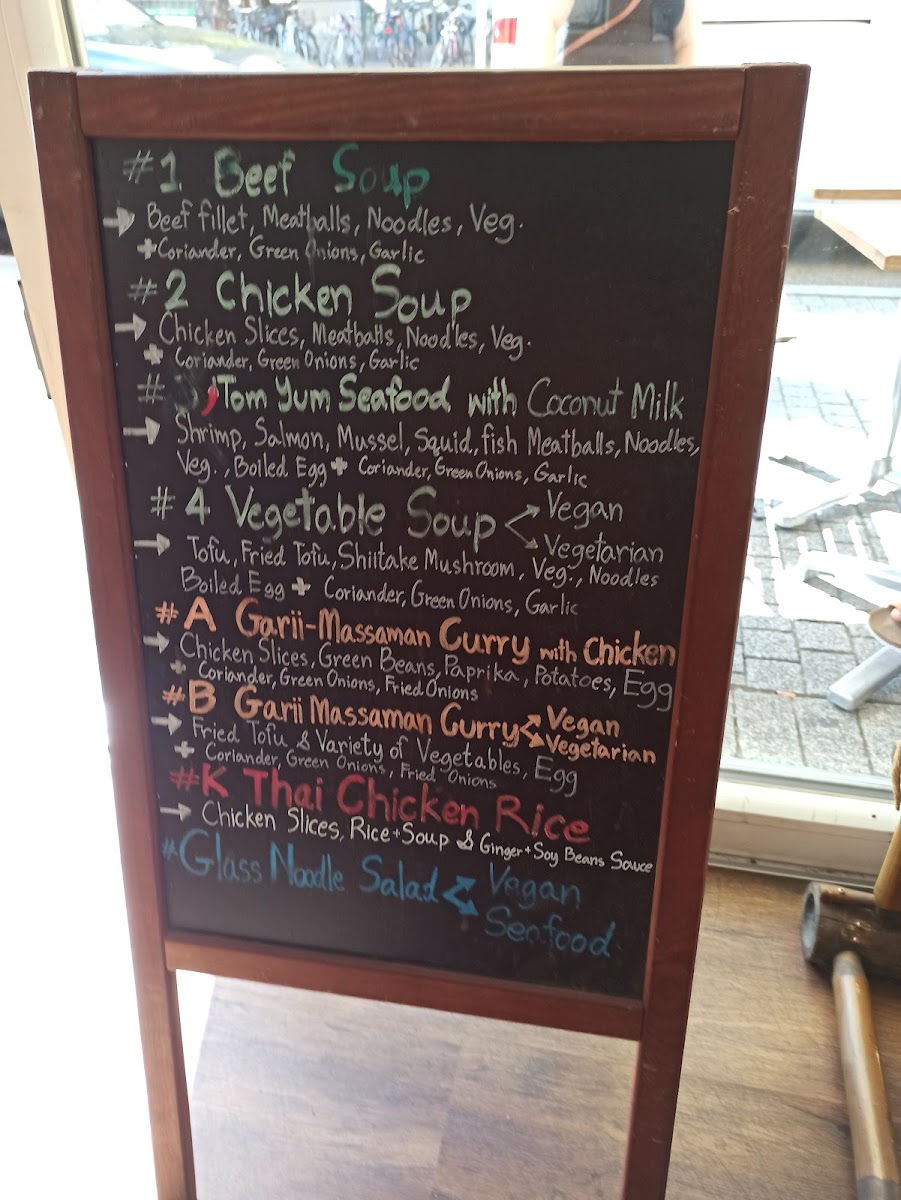 #1 Beef Soup
→ Beef fillet, Meatballs, Noodles, Veg.
+ Coriander, Green Onions, Garlic
#2 Chicken Soup
→ Chicken Slices, Meatballs, Noodles, Veg.
+ Coriander, Green Onions, Garlic
#3 Tom Yum Seafood with Coconut Milk
→ Shrimp, Salmon, Mussel, Squid, fish Meatballs, Noodles,
Veg., Boiled Egg + Coriander, Green Onions, Garlic
#4 Vegetable Soup Vegan
Vegetarian
→ Tofu, Fried Tofu, Shiitake Mushroom, Veg., Noodles
Boiled Egg + Coriander, Green Onions, Garlic
#A Garii-Massaman Curry with Chicken
→ Chicken Slices, Green Beans, Paprika, Potatoes, Egg
+ Coriander, Green Onions, Fried Onions
#B Garii Massaman Curry Vegan
Vegetarian
→ Fried Tofu & Variety of Vegetables, Egg
+ Coriander, Green Onions, Fried Onions
#K Thai Chicken Rice
→ Chicken Slices, Rice+Soup & Ginger+Soy Beans Sauce
#Glass Noodle Salad Vegan
Seafood